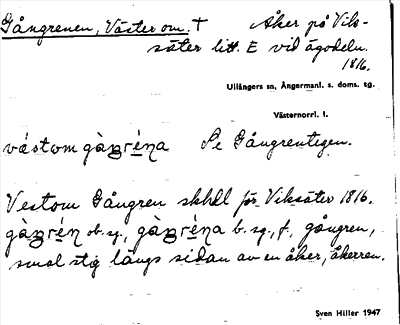 Gångrenen, Väster om. † Åker på Vik-
säter litt. E vid ägodeln.
1816.
Ullångers sn, Ångermanl. s. doms. tg.
Västernorrl. l.
vástom gàŋréna Se Gångrentegen.
Vestom Gångren skhdl för Viksäter 1816.
gàŋrén ob. sg., gàŋréna b. sg., f., gångren,
smal stig längs sidan av en åker, åkerren.
Sven Hiller 1947